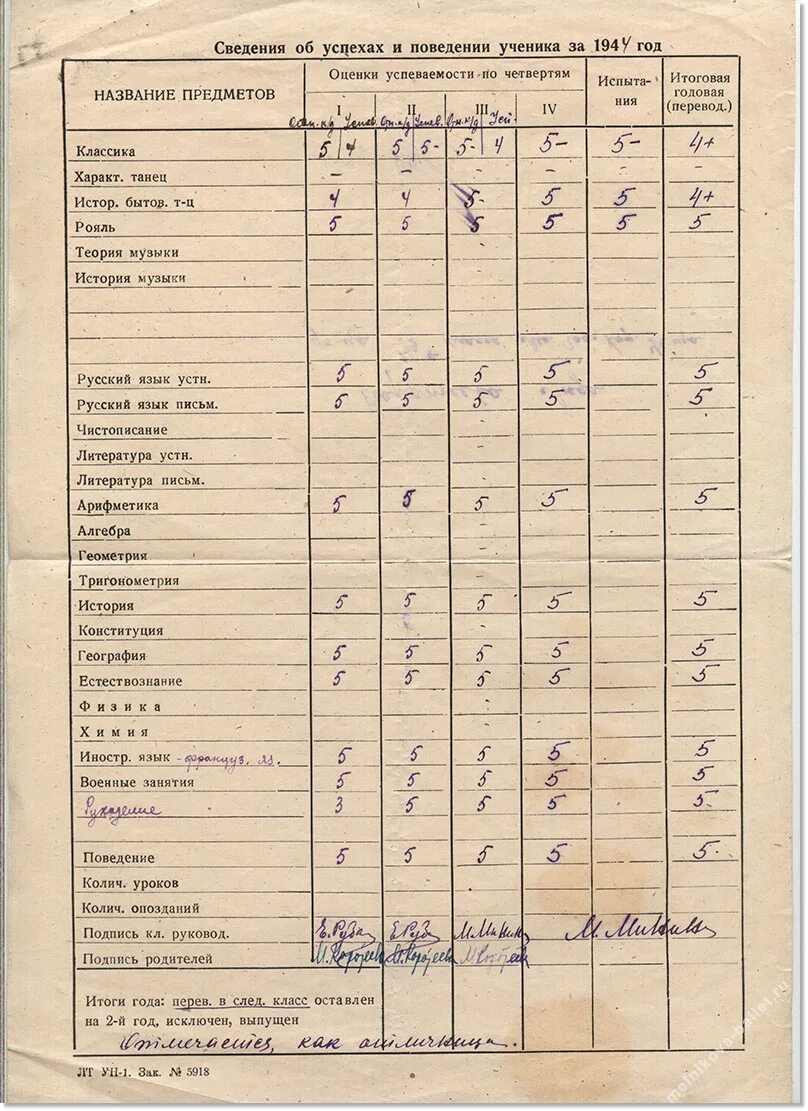 Сведения об успехах и поведении ученика за 1944 год
НАЗВАНИЕ ПРЕДМЕТОВ
Оценки успеваемости по четвертям
Испыта-
ния
Итоговая
годовая
(перевод.)
I II III IV
Успев. Успев. Усп.
Классика 5 4 5 5- 5- 4 5- 5- 4+
Характ. танец - - - - - -
Истор. бытов. т-ц 4 4 5- 5 5 4+
Рояль 5 5 5 5 5 5
Теория музыки -
История музыки -
Русский язык устн. 5 5 5 5 5
Русский язык письм. 5 5 5 5 5
Чистописание -
Литература устн. -
Литература письм.
Арифметика 5 5 5 5 5
Алгебра -
Геометрия -
Тригонометрия -
История 5 5 5 5 5
Конституция -
География 5 5 5 5 5
Естествознание 5 5 5 5 5
Физика -
Химия -
Иностр. язык - француз. яз. 5 5 5 5 5
Военные занятия 5 5 5 5 5
Рукоделие 3 5 5 5 5
Поведение 5 5 5 5 5
Колич. уроков
Колич. опозданий
Подпись кл. руковод.
Подпись родителей
Итоги года: перев. в след. класс оставлен
на 2-й год, исключен, выпущен
Отмечается, как отличница.
ЛТ УП-1. Зак. № 5918
melnikova-ballet.ru